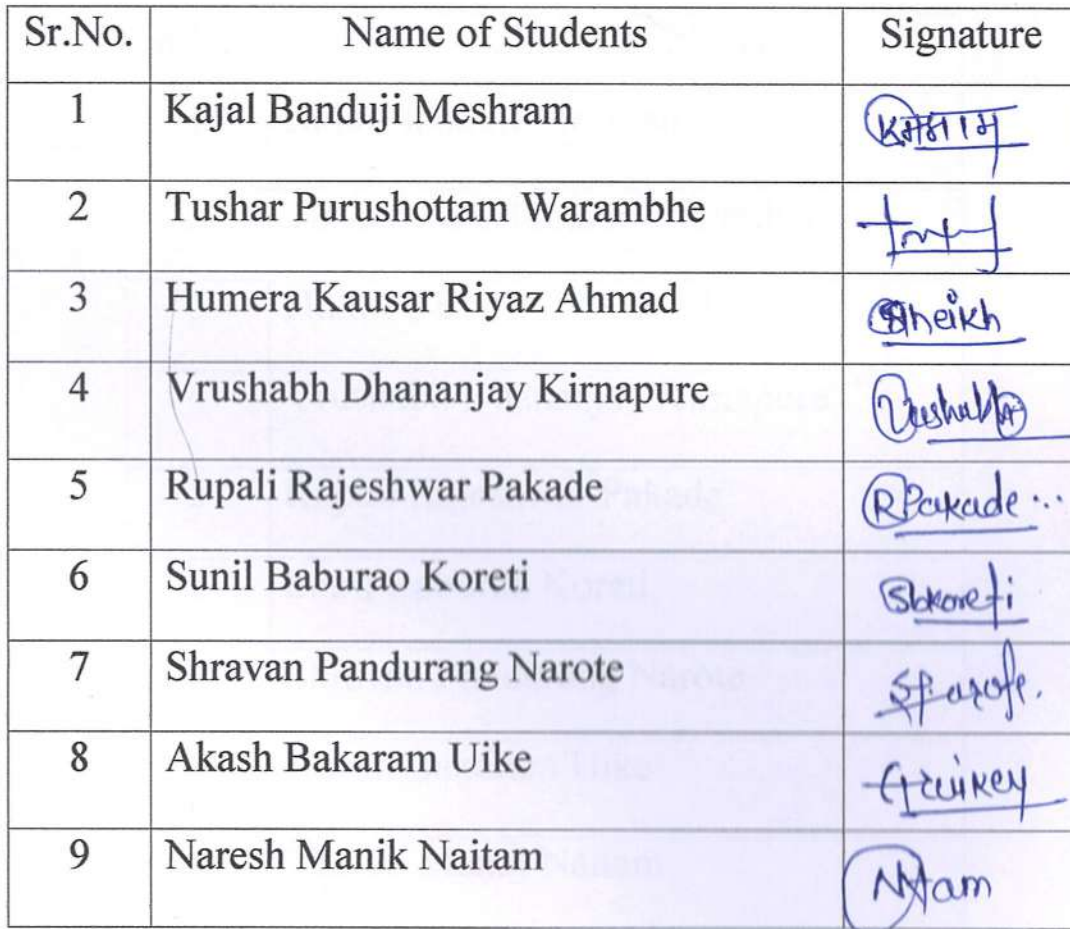 Sr.No. Name of Students Signature
1 Kajal Banduji Meshram
2 Tushar Purushottam Warambhe
3 Humera Kausar Riyaz Ahmad Sheikh
4 Vrushabh Dhananjay Kirnapure Vrushabh
5 Rupali Rajeshwar Pakade RPakade..
6 Sunil Baburao Koreti Sbkoreti
7 Shravan Pandurang Narote
8 Akash Bakaram Uike
9 Naresh Manik Naitam